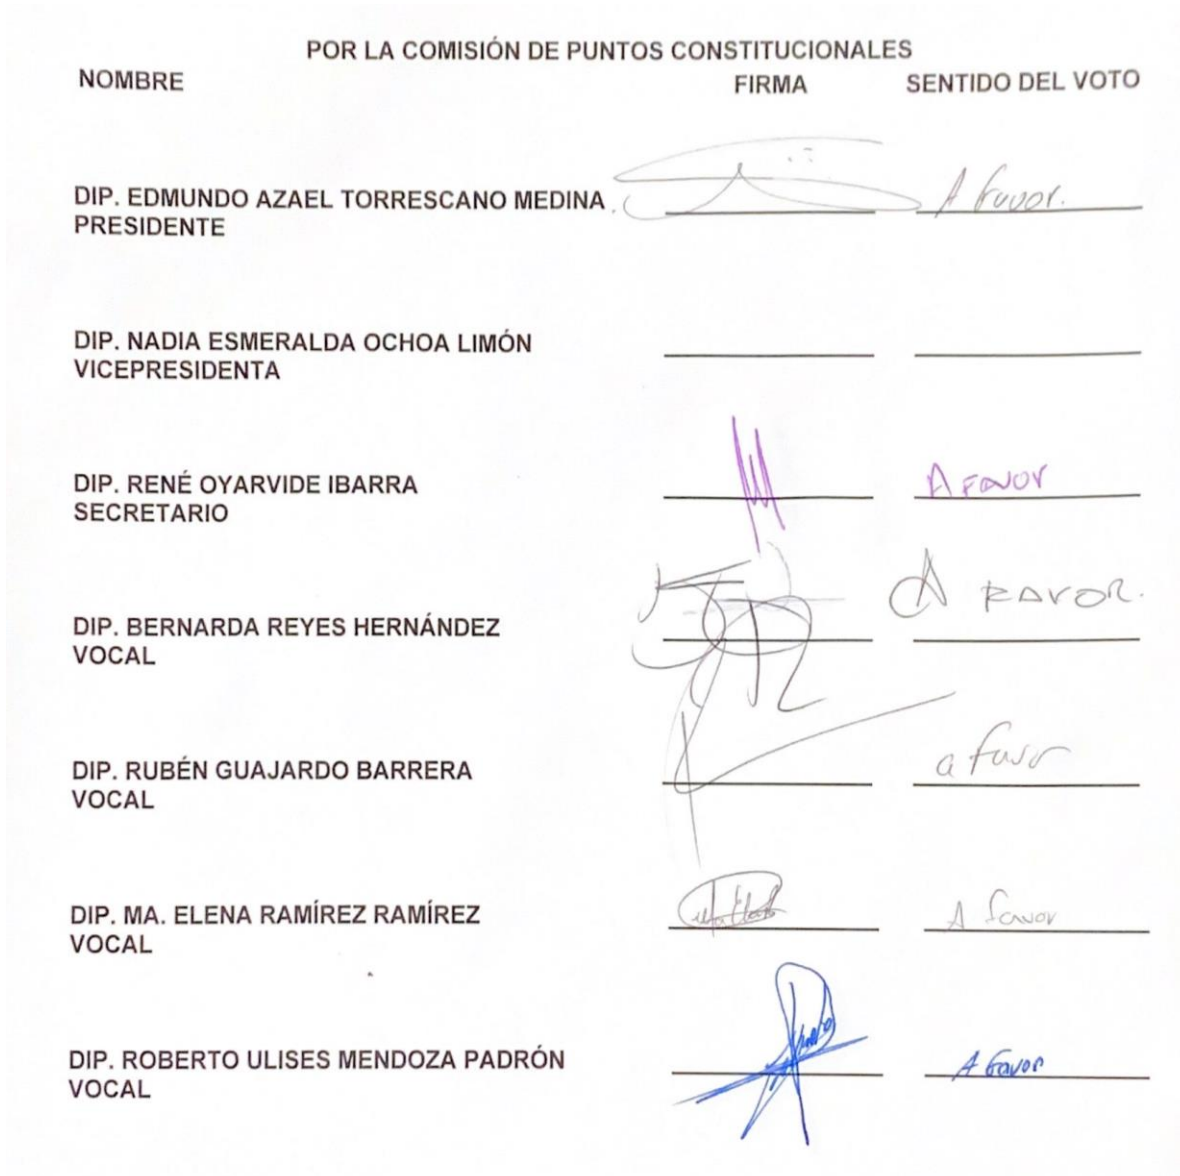 POR LA COMISIÓN DE PUNTOS CONSTITUCIONALES
NOMBRE FIRMA SENTIDO DEL VOTO
DIP. EDMUNDO AZAEL TORRESCANO MEDINA A favor.
PRESIDENTE
DIP. NADIA ESMERALDA OCHOA LIMÓN
VICEPRESIDENTA
DIP. RENÉ OYARVIDE IBARRA A FAVOR
SECRETARIO
DIP. BERNARDA REYES HERNÁNDEZ A FAVOR.
VOCAL
DIP. RUBÉN GUAJARDO BARRERA a favor
VOCAL
DIP. MA. ELENA RAMÍREZ RAMÍREZ A favor
VOCAL
DIP. ROBERTO ULISES MENDOZA PADRÓN A favor
VOCAL